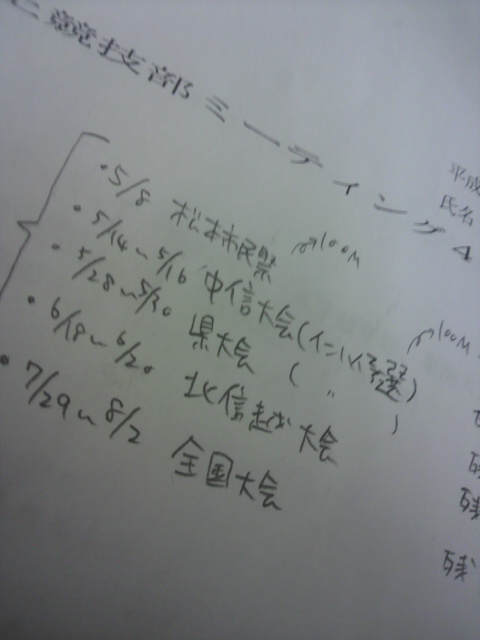 競技部ミーティング4
平成
氏名
・5/8 松本市民祭 →100M
・5/14〜5/16 中信大会(インハイ予選) →100M
・5/28〜5/30 県大会 ( 〃 )
・6/18〜6/20 北信越大会
・7/29〜8/2 全国大会
残
残